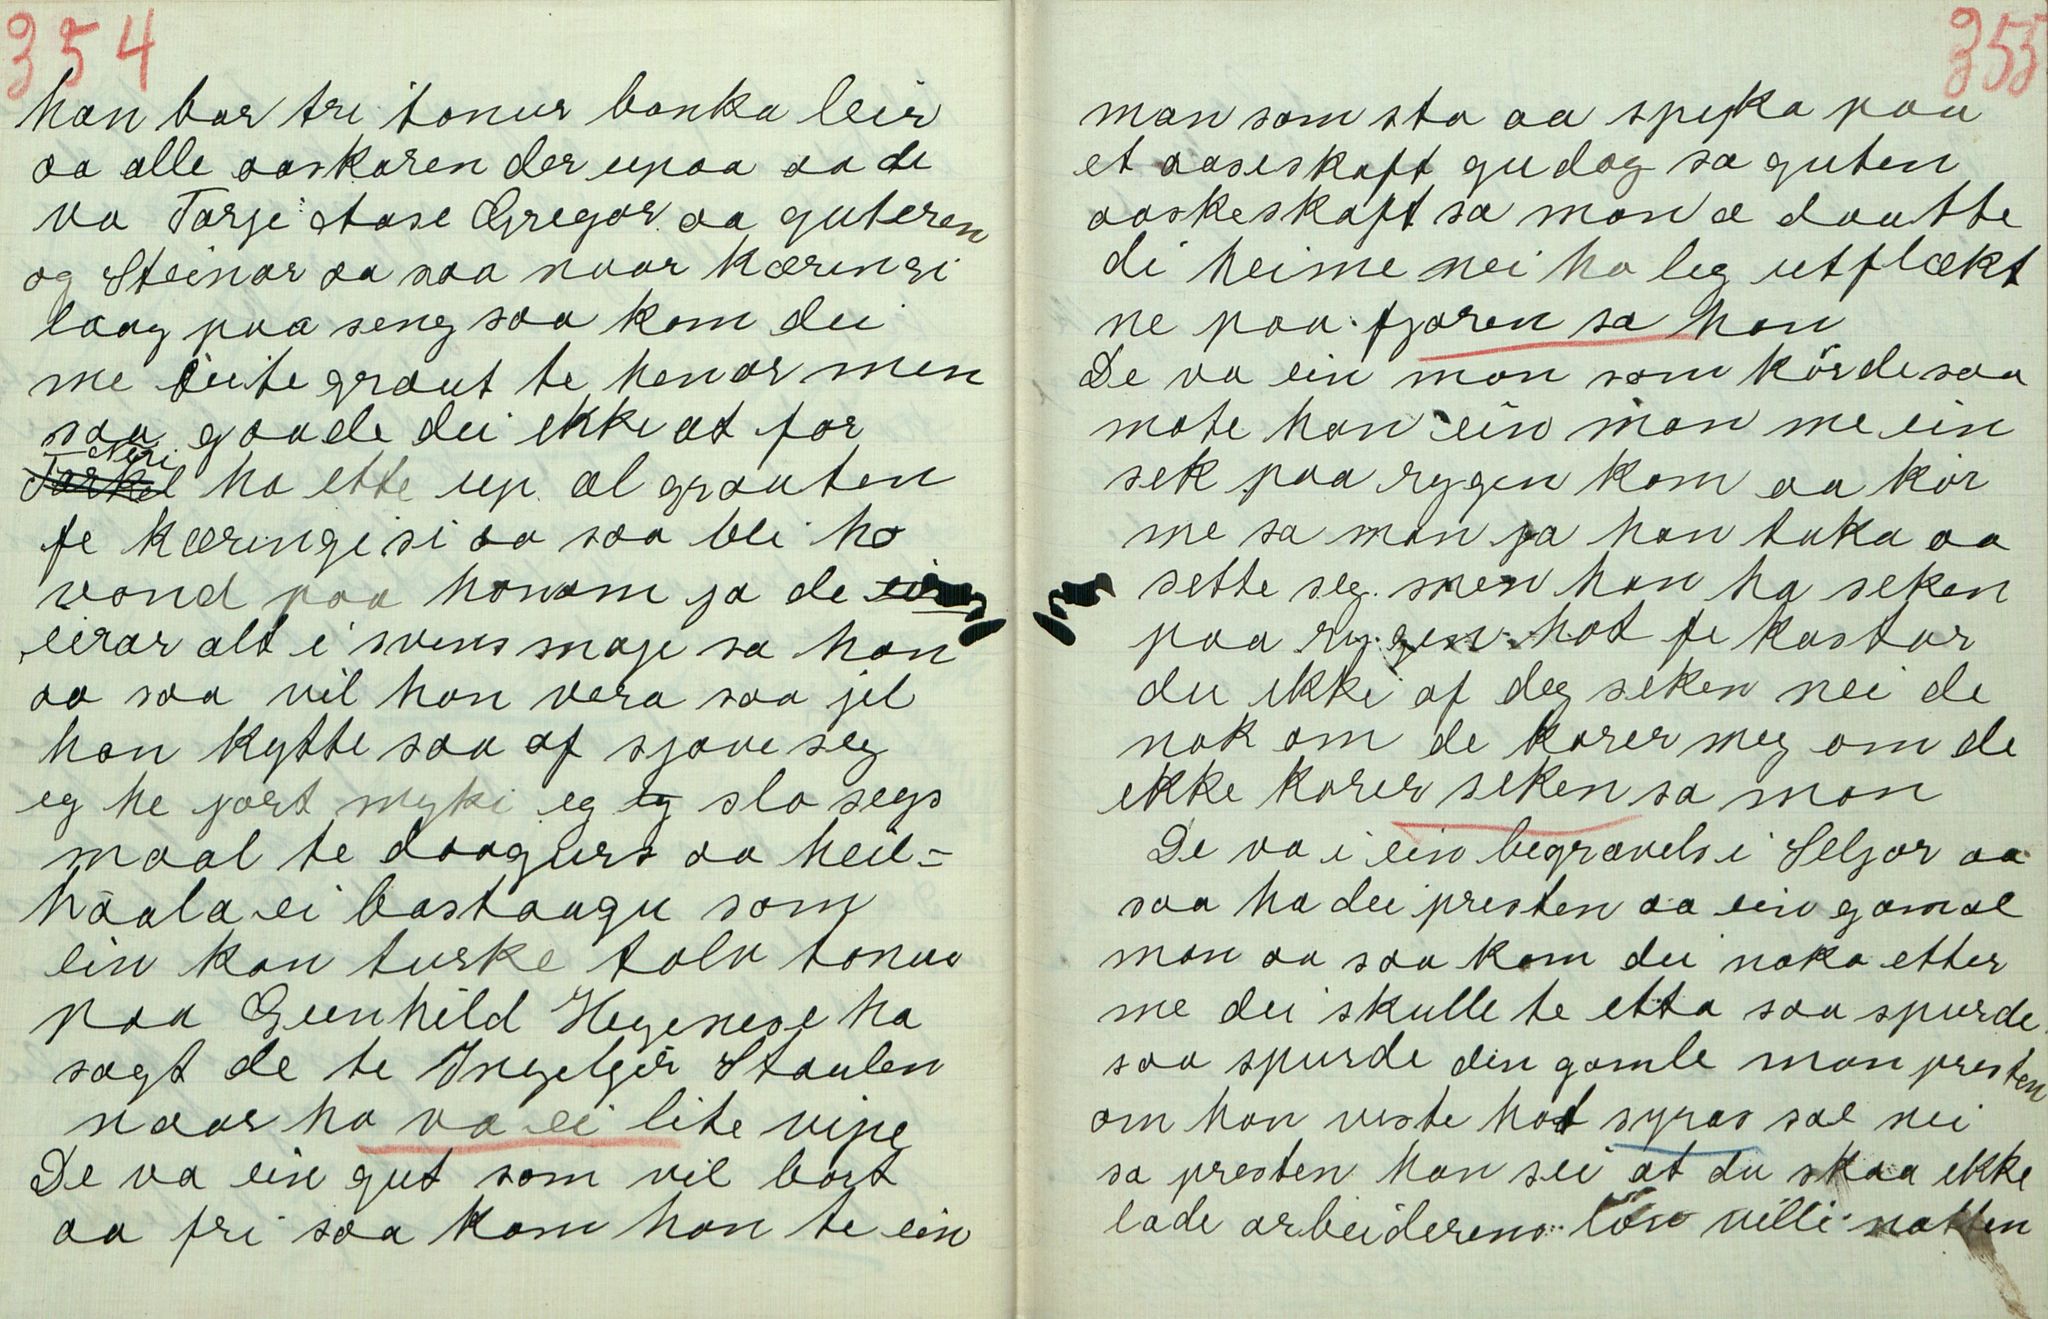 354
han bar tri tonur banka leir
aa alle aaskaren der upaa aa de
va Tarje Aase Gregar aa guteren
og Steinar aa saa naar kæringi
laag paa seng saa kom dei
me graut te henar men
saa gaade dei ikke at far
Neri
Tarkel ha ette up al grauten
fe kæringi si aa saa blei ho
vond paa honom ja de
eirar alt i svins maje sa han
aa saa vil han vera saa jel
han kytte saa af sjave seg
eg he jort myki eg eg slo segs
maal te daagurs aa heil-
haala ei bastaagu som
ein kan turke talv tonur
paa Gunhild Hegenese ha
sagt de te Ingelgjer Staulen
naar ho va ei lite vipe
De va ein gut som vil bort
aa fri saa kom han te ein
355
man som sto aa spikka paa
et aaseskaft gudag sa guten
aaskeskaft sa man æ daatte
di heime nei ho leg utflækt
ne paa fjaren sa han
De va ein man som körde saa
møte han ein man me ein
sek paa rygen kom aa kör
me sa man ja han taka aa
sette seg men han ha seken
paa rygen hot fe kastar
du ikki af deg seken nei de
nok om de kører meg om de
ikke kører seken sa man
De va i ein begravels i Seljor aa
saa ha dei presten aa ein gamal
man aa saa kom dei noko etter
me dei skulle te etta saa spurde
saa spurde din gamle man presten
om han viste hot syras sæl nei
sa presten han sei at du skaa ikke
lade arbeiderens løn villi natten